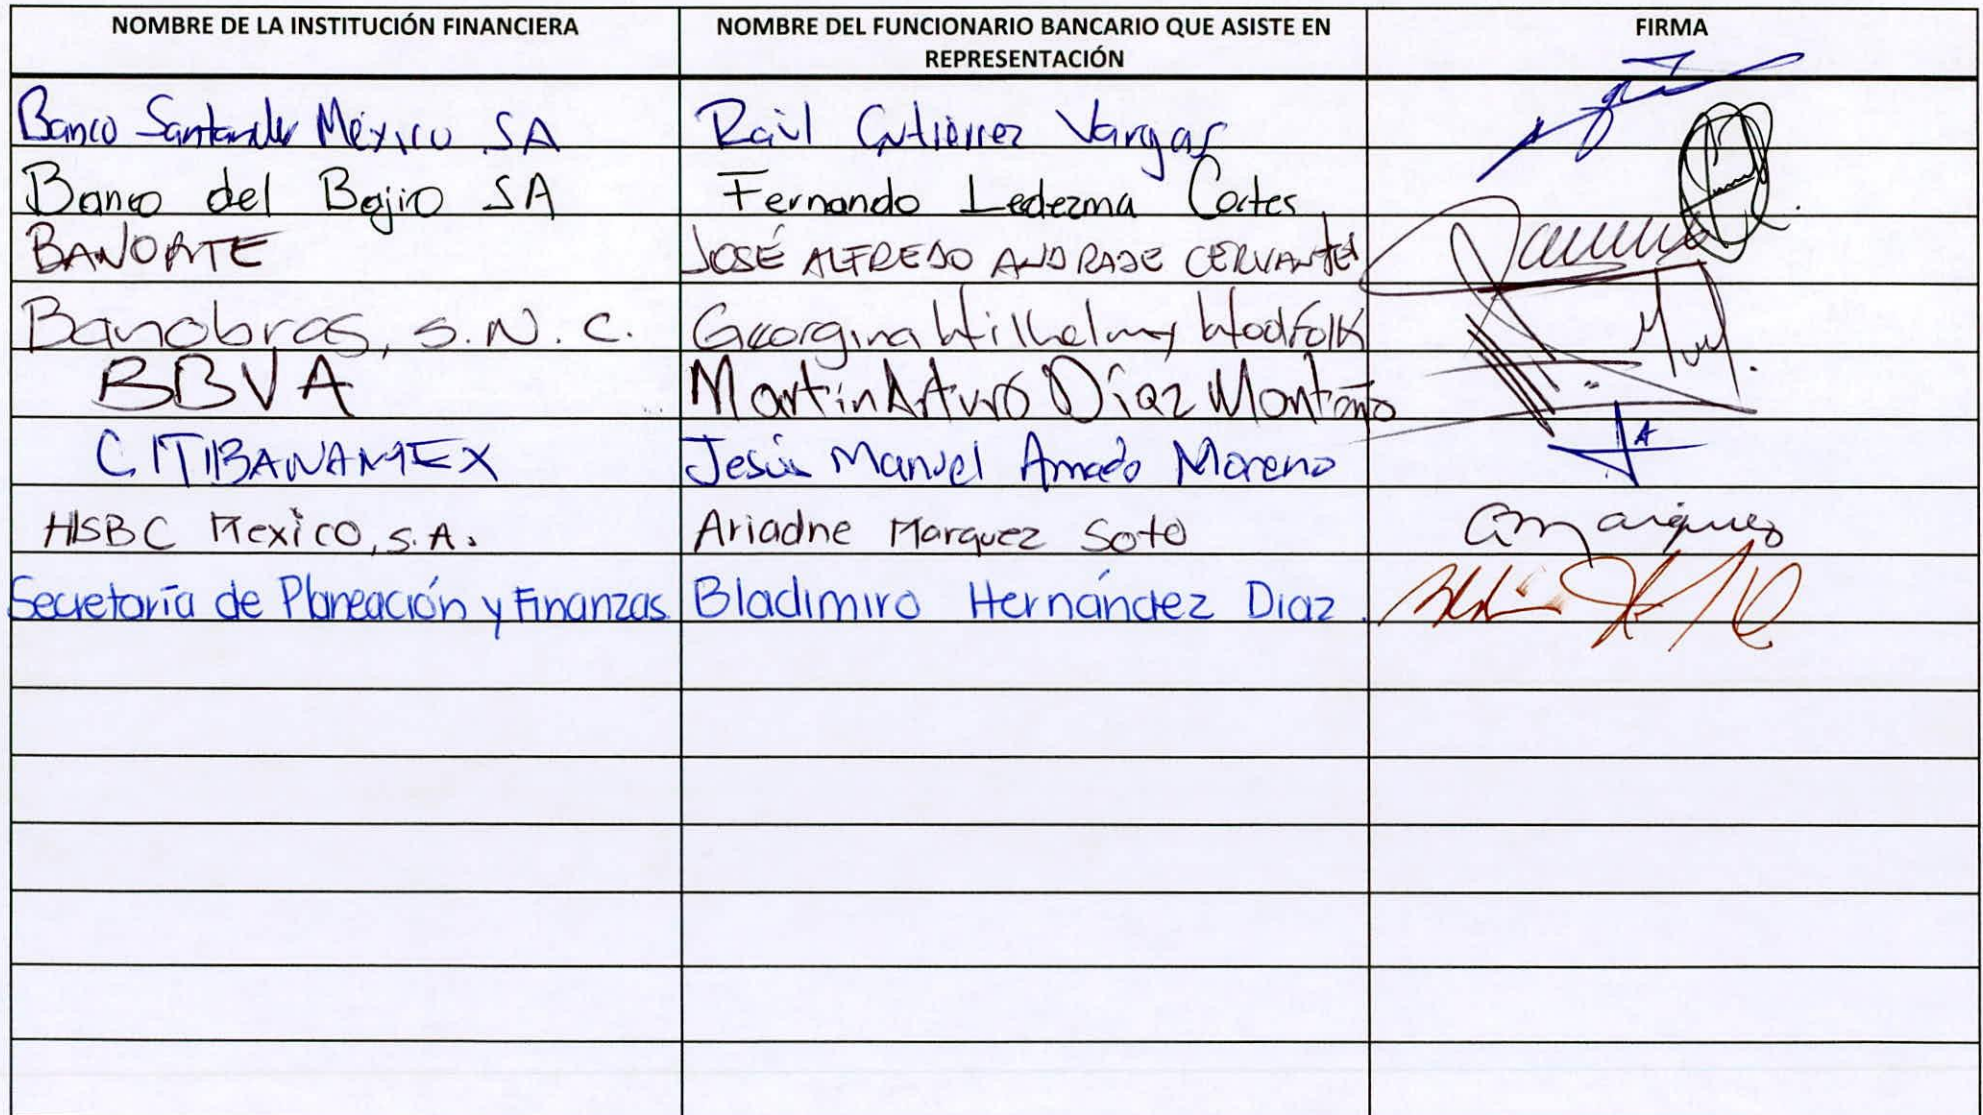 NOMBRE DE LA INSTITUCIÓN FINANCIERA
NOMBRE DEL FUNCIONARIO BANCARIO QUE ASISTE EN
REPRESENTACIÓN
FIRMA
Banco Santander México SA Raúl Gutiérrez Vargas
Banco del Bajio SA Fernando Ledezma Cortes
BANORTE JOSÉ ALFREDO ANDRADE CERVANTES
Banobras, S.N.C. Georgina Wilhelmy
BBVA Martín Arturo Díaz Montaño
CITIBANAMEX Jesús Manuel Amado Moreno
HSBC Mexico, S.A. Ariadne Marquez Soto
Secretaría de Planeación y Finanzas Bladimiro Hernández Diaz.